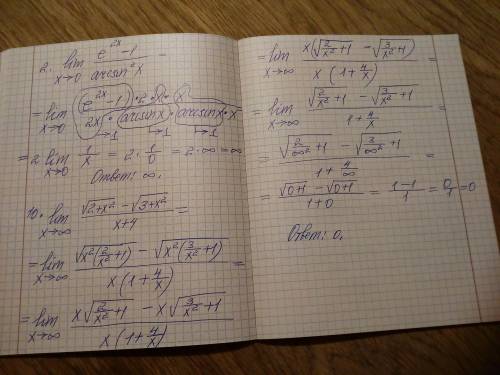 2. lim x→0 (e^2x - 1)/(arcsin²x) =
= lim x→0 ((e^2x - 1) · 2 · x · x)/(2x · (arcsin x) · (arcsin x) · x) =
→1 →1 →1
= 2 lim x→0 1/x = 2 · 1/0 = 2 · ∞ = ∞
Ответ: ∞.
10. lim x→∞ (√(2+x²) - √(3+x²))/(x+4) =
= lim x→∞ (√(x²(2/x² + 1)) - √(x²(3/x² + 1)))/(x(1 + 4/x)) =
= lim x→∞ (x√(2/x² + 1) - x√(3/x² + 1))/(x(1 + 4/x))
= lim x→∞ (x(√(2/x² + 1) - √(3/x² + 1)))/(x(1 + 4/x)) =
= lim x→∞ (√(2/x² + 1) - √(3/x² + 1))/(1 + 4/x) =
= (√(2/∞² + 1) - √(3/∞² + 1))/(1 + 4/∞) =
= (√(0+1) - √(0+1))/(1+0) = (1-1)/1 = 0/1 = 0
Ответ: 0.